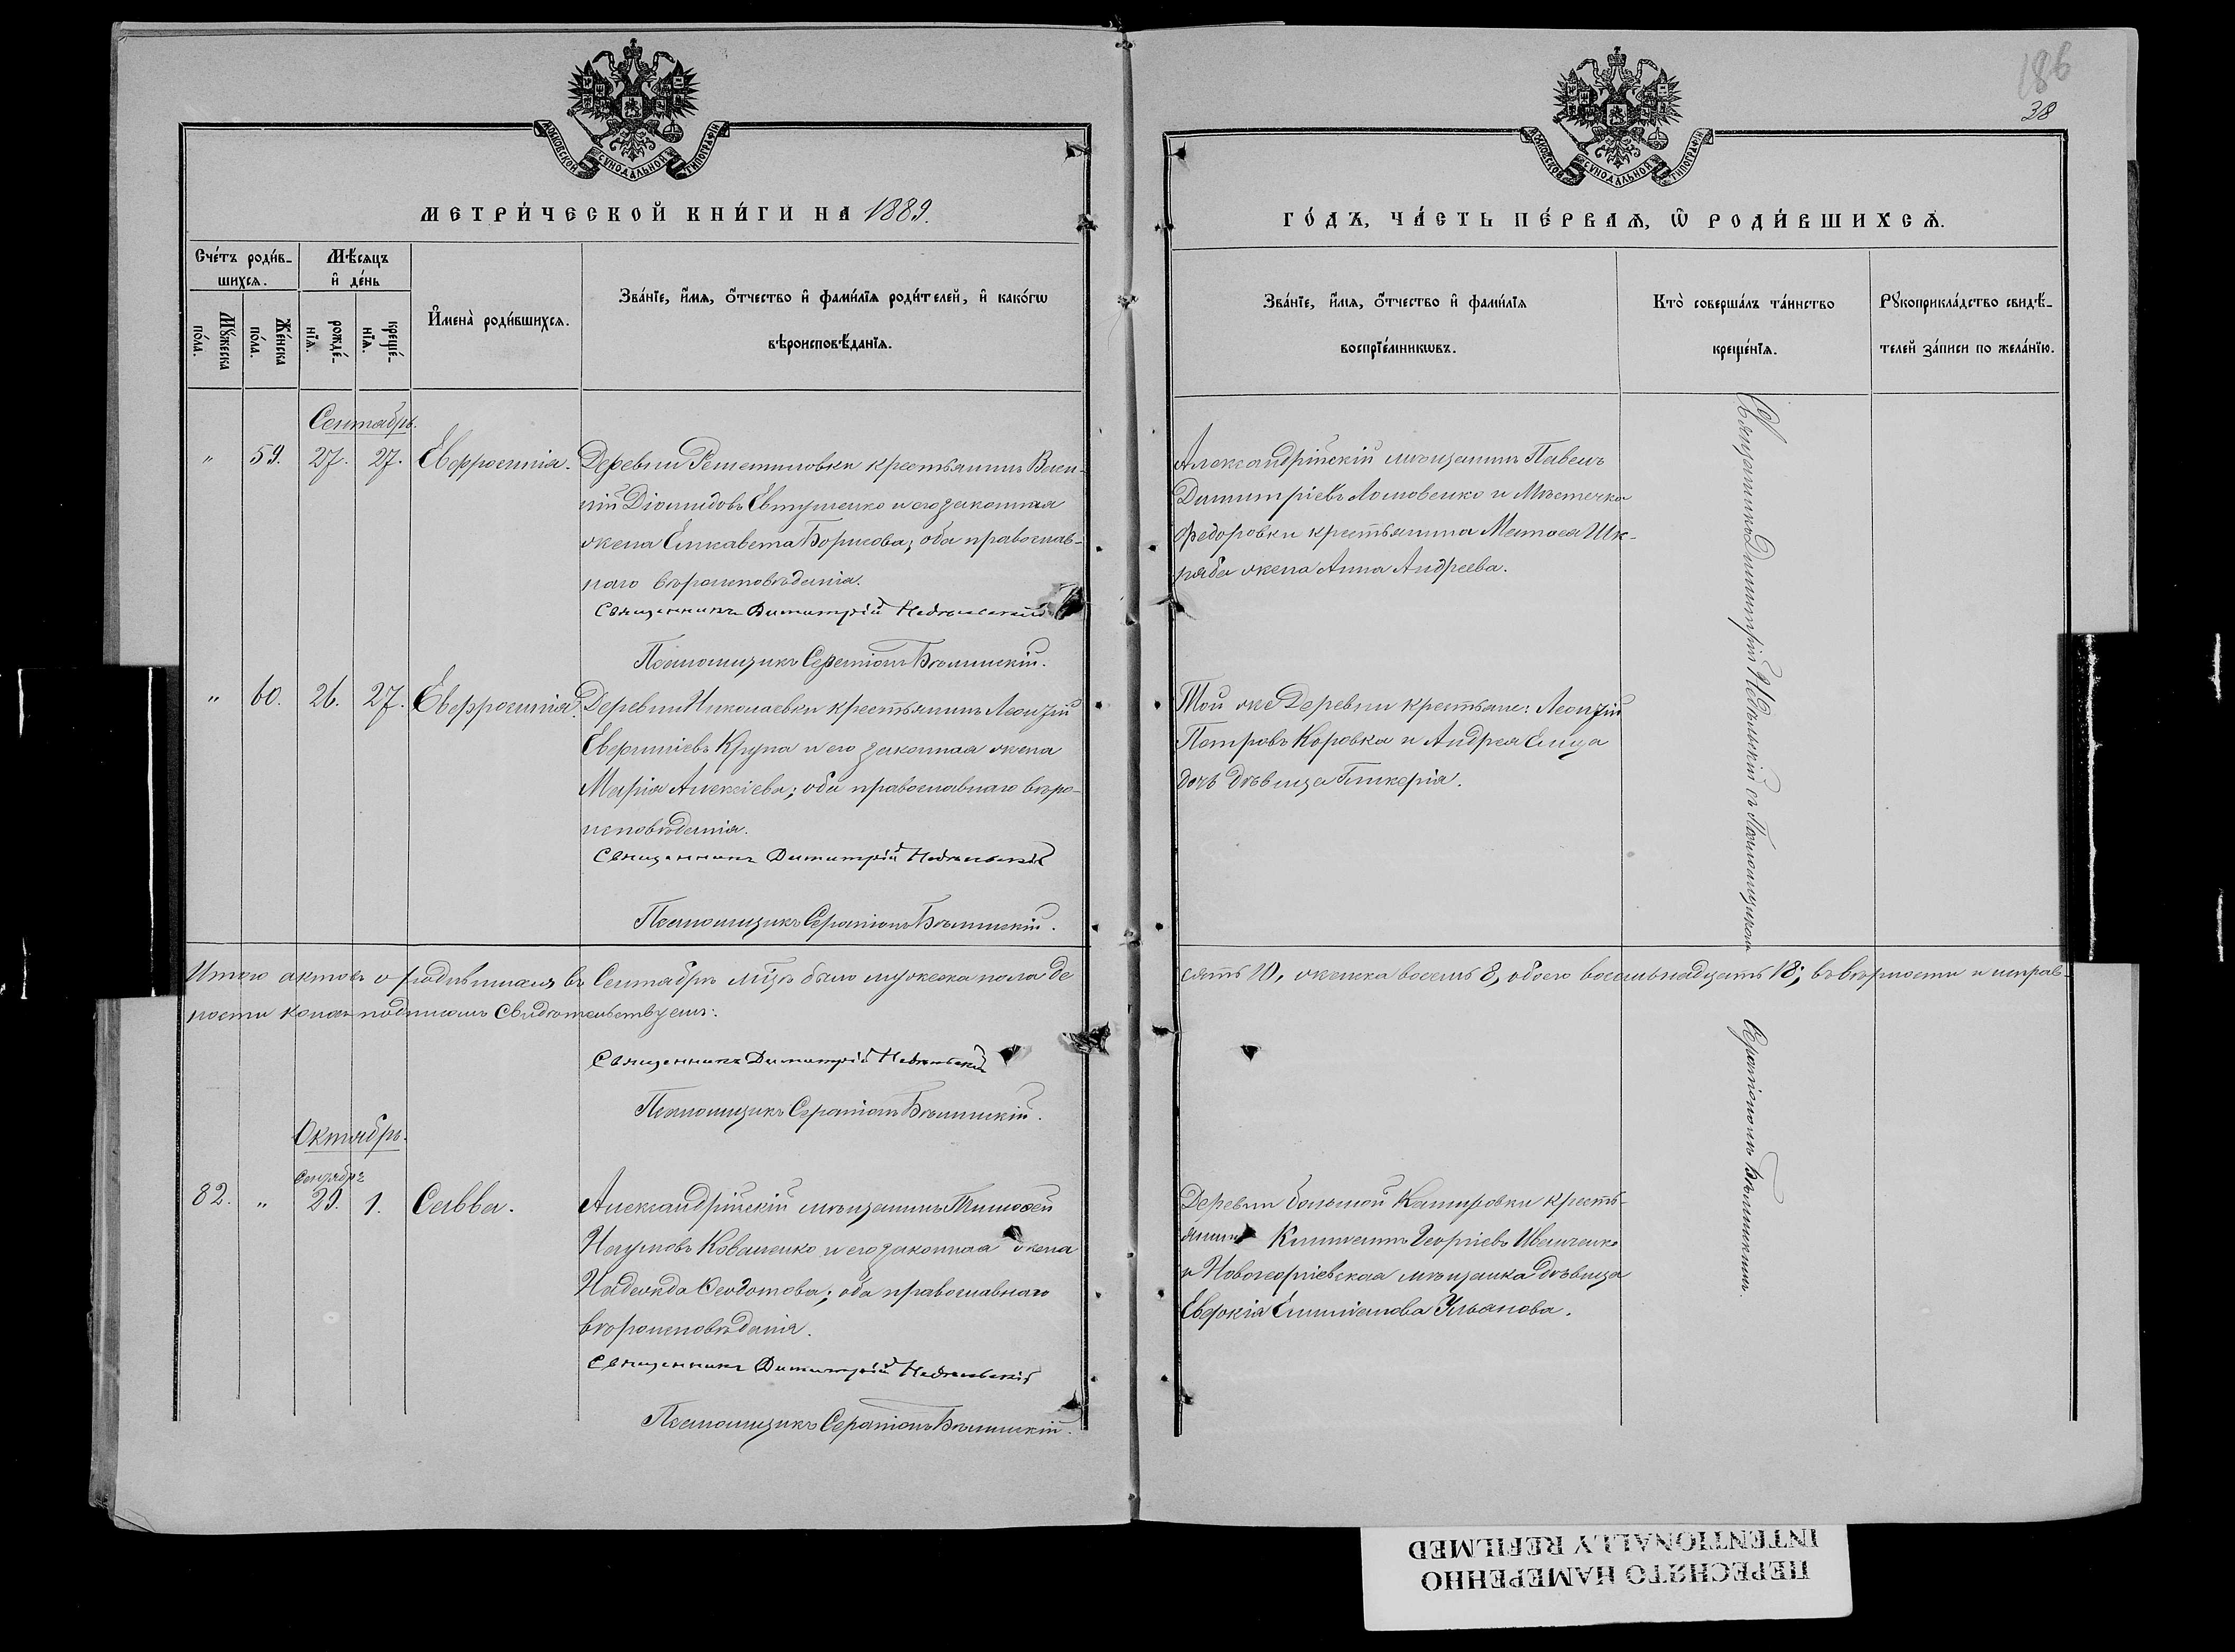 МОСКОВСКОЙ СѴНОДАЛЬНОЙ ТИПОГРАФІИ
МЕТРИ́ЧЕСКОЙ КНИ́ГИ НА 1889.
Сче́тъ роди́в-
шихсѧ.
Мѣ́сѧцъ
и҆ де́нь
Мꙋ́жеска
по́ла.
Же́нска
по́ла.
рожде́-
нїѧ.
креще́-
нїѧ.
И҆мена̀ роди́вшихсѧ.
Зва́нїе, и҆́мѧ, ѻ҆́тчество и҆ фами́лїѧ роди́телей, и҆ како́гѡ
вѣроисповѣ́данїѧ.
Сентябрь.
" 59. 27. 27. Евфросинія.
Деревни Решетиловки крестьянинъ Васи-
лій Діомидовъ Евтушенко и его законная
жена Елисавета Борисова; оба православ-
наго вѣроисповѣданія.
Священникъ Димитрій Недѣльскій
Псаломщикъ Серапіонъ Бѣлинскій.
" 60. 26. 27. Евфросинія.
Деревни Николаевки крестьянинъ Леонтій
Крупа и его законная жена
Марія Алексіева; оба православнаго вѣро-
исповѣданія.
Священникъ Димитрій Недѣльскій
Псаломщикъ Серапіонъ Бѣлинскій.
Итого актовъ о родившихся въ Сентябрѣ мцѣ было мужеска пола де
ности коихъ подписомъ свидѣтельствуемъ:
Священникъ Димитрій Недѣльскій
Псаломщикъ Серапіонъ Бѣлинскій.
Октябрь.
Сентября
82. " 29. 1. Савва.
Александрійскій мѣщанинъ Тимоѳей
Наумовъ Коваленко и его законная жена
Надежда Ѳеодотова; оба православнаго
вѣроисповѣданія.
Священникъ Димитрій Недѣльскій
Псаломщикъ Серапіонъ Бѣлинскій.
186
38
МОСКОВСКОЙ СѴНОДАЛЬНОЙ ТИПОГРАФІИ
ГО́ДЪ, ЧА́СТЬ ПЕ́РВАѦ, Ѡ҆ РОДИ́ВШИХСѦ.
Зва́нїе, и҆́мѧ, ѻ҆́тчество и҆ фами́лїѧ
воспрїе́мникѡвъ.
Кто̀ соверша́лъ та́инство
креще́нїѧ.
Рꙋкоприкла́дство свидѣ́-
телей за́писи по жела́нїю.
Александрійскій мѣщанинъ Павелъ
Димитріевъ Ломовенко и Мѣстечка
Федоровки крестьянина Шк-
ряба жена Анна Андреева.
Той же Деревни крестьяне: Леонтій
Петровъ Коровка и Андрея
дочь дѣвица Гликерія.
сять 10, женска восемь 8, обоего восемьнадцать 18; въ вѣрности и исправ-
Деревни большой Кашировки кресть-
янинъ Климентъ Георгіевъ Иванченко
и Новогеоргіевская мѣщанка дѣвица
Евдокія Ульянова.
Священникъ Димитрій Недѣльскій съ Псаломщикомъ
Серапіономъ Бѣлинскимъ.
ПЕРЕСНЯТО НАМЕРЕННО
INTENTIONALLY REFILMED